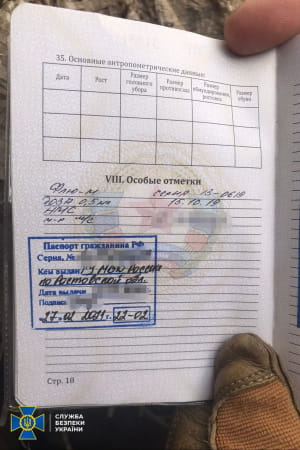 35. Основные антропометрические данные:
Дата
Рост
Размер головного убора
Размер противогаза
Размер обмундирования, ростовка
Размер обуви
VIII. Особые отметки
Флю-М серия 15-0619
доза 0,5 мл 15.10.19
Паспорт гражданина РФ
Серия, №
Кем выдан ГУ МВД России
по Ростовской обл.
Дата выдачи
Подпись
г. 22-02
Стр. 18
СЛУЖБА
БЕЗПЕКИ
УКРАЇНИ